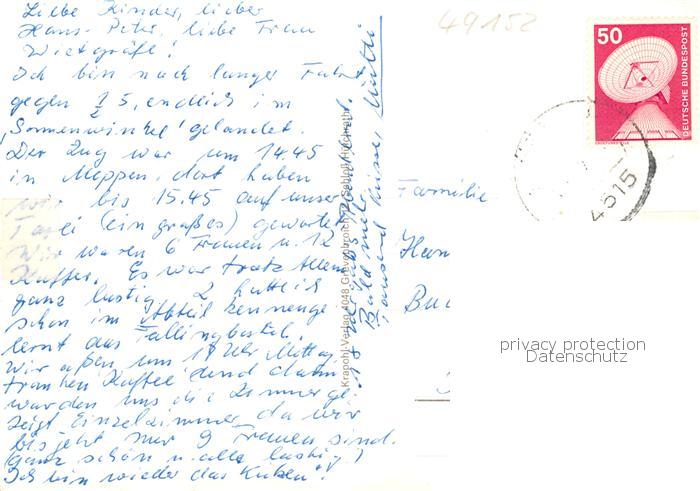 Liebe Kinder, lieber
Hans-Peter, liebe Frau
Wietgräfe!
Ich bin nach langer Fahrt
gegen ½ 5, endlich im
„Sonnenwinkel' gelandet.
Der Zug war um 14 45
in Meppen, dort haben
wir bis 15.45 auf unser
Taxi (ein großes) gewartet
Wir waren 6 Frauen u. 12
Koffer. Es war trotz Allem
ganz lustig, 2 hatte ich
schon im Abteil kennenge
lernt aus Fallingbostel.
Wir aßen um 18 Uhr Mittag,
tranken Kaffee und dann
wurden uns die Zimmer ge
zeigt. Einzelzimmer da wir
bis jetzt nur 9 Frauen sind.
(ganz schön u. alle lustig!)
Ich bin wieder das Küken"!
Bald mehr
Tausend Küsse, Mutti
Krapohl-Verlag 4048 Grevenbroich
49152
50
DEUTSCHE BUNDESPOST
4515
Familie
privacy protection
Datenschutz